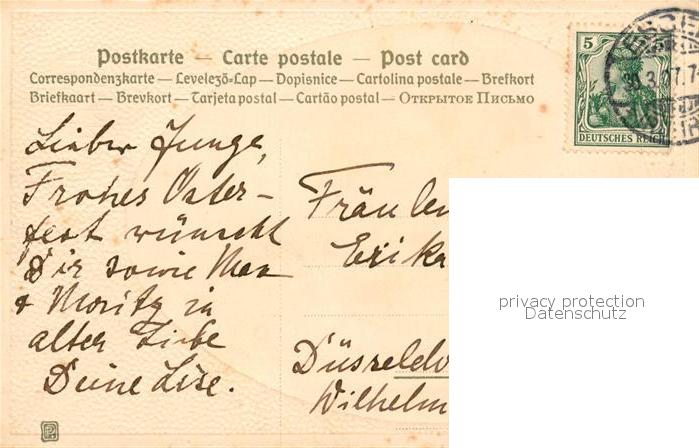 Postkarte — Carte postale — Post card
Correspondenzkarte — Levelező-Lap — Dopisnice — Cartolina postale — Brefkort
Briefkaart — Brevkort — Tarjeta postal — Cartão postal — Открытое Письмо
5
DEUTSCHES REICH
Lieber Junge,
Frohes Oster-
fest wünscht
Dir sowie Max
& Moritz in
alter Liebe
Deine Lise.
Fräulein
Erika
Düsseldo
Wilhelm
privacy protection
Datenschutz